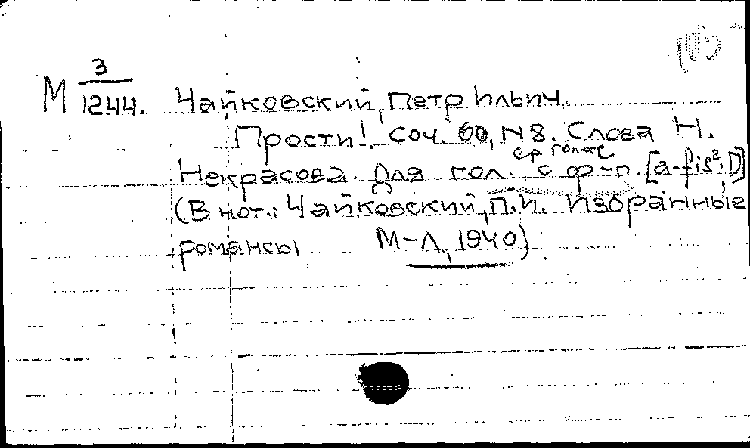 М 3/1244. Чайковский, Петр Ильич.
Прости! Соч. 60, N 8. Слова Н.
Некрасова Для гол. с ф-п. [a-fis²; D]
(В нот.: Чайковский, П.И. Избранные
романсы М-Л, 1940)